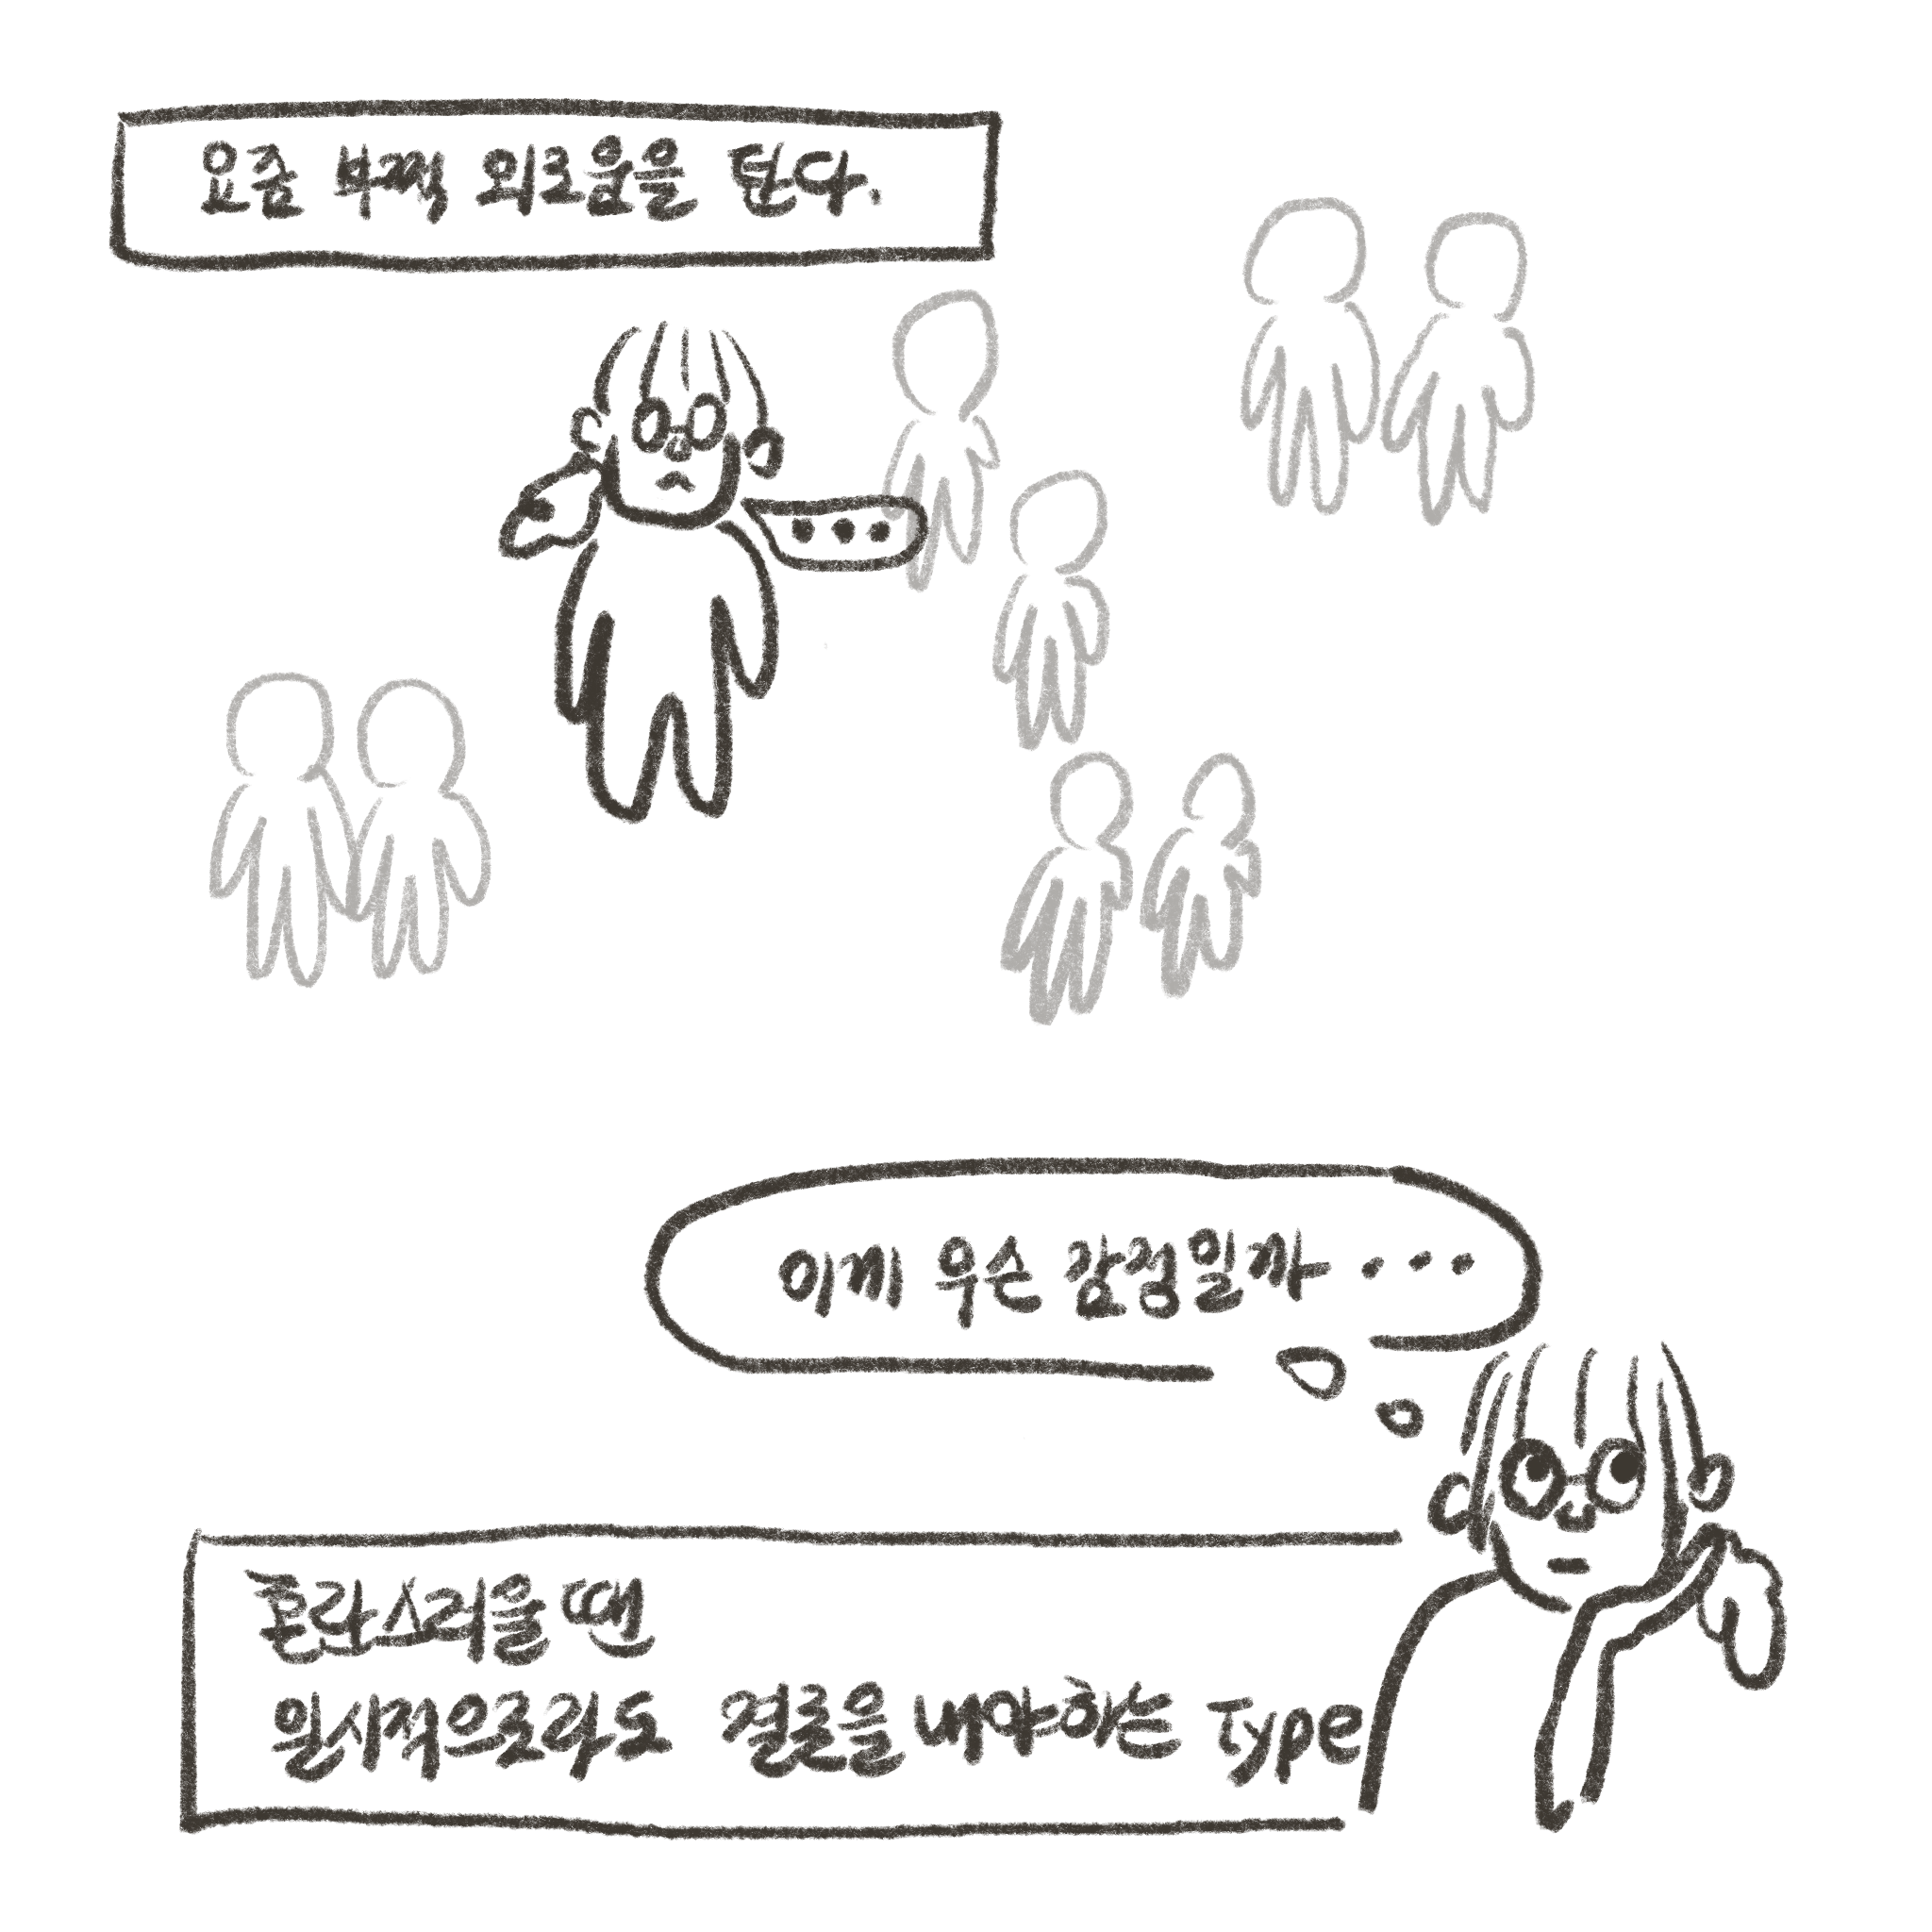 요즘 부쩍 외로움을 탄다.
...
이게 무슨 감정일까...
혼란스러울 땐
일시적으로라도 결론을 내야하는 Type